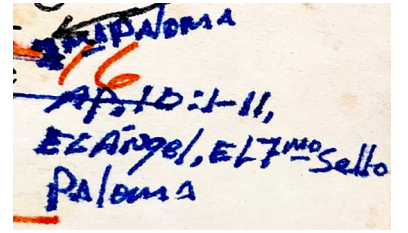 2ma Paloma
16
AP. 10:1-11,
EL Ángel, EL 7mo Sello
Paloma